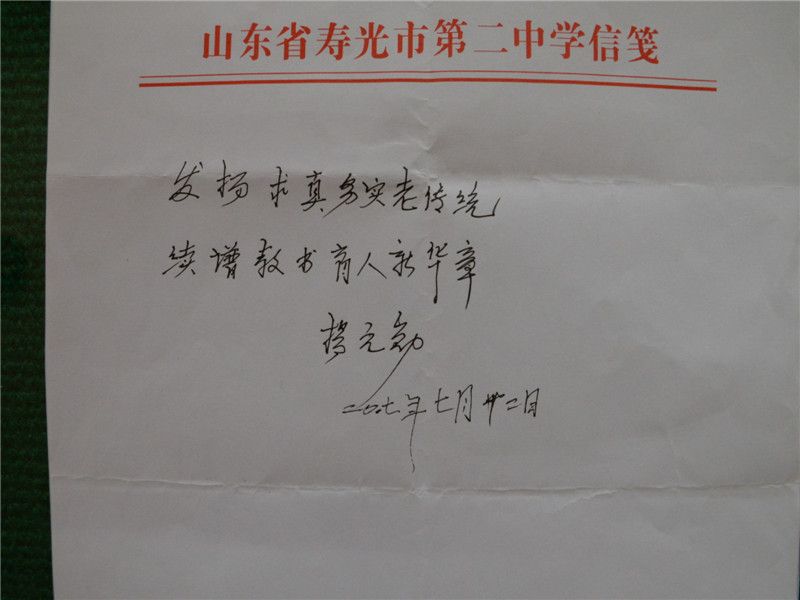 山东省寿光市第二中学信笺
发扬求真务实老传统
续增教书育人新华章
元勋
二〇〇七年七月廿二日